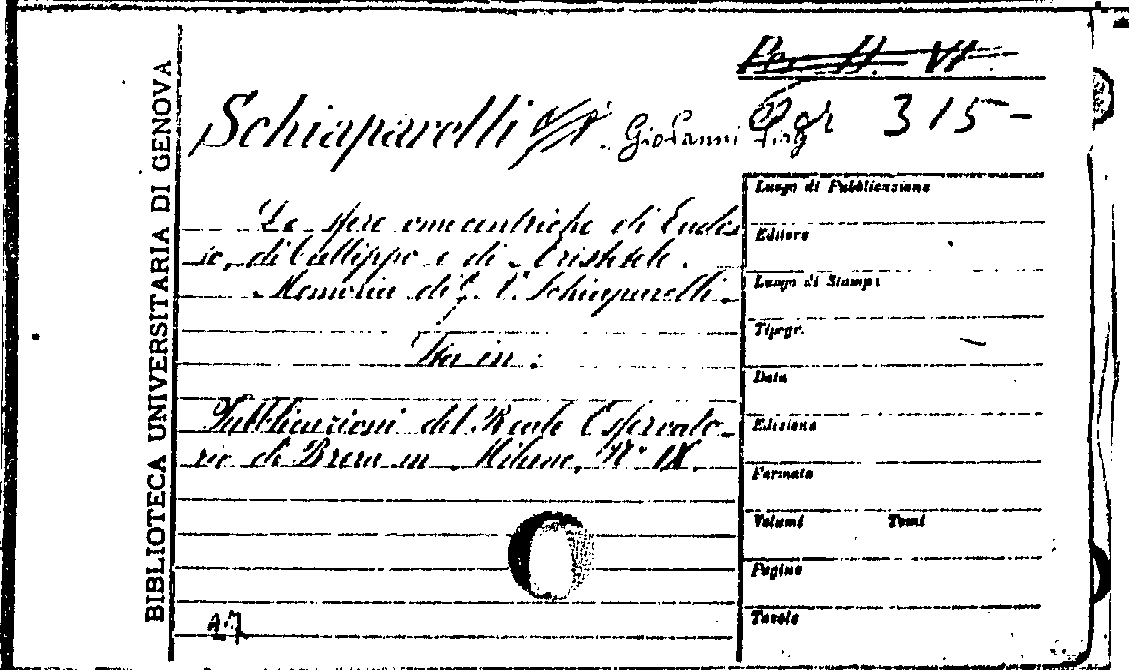 BIBLIOTECA UNIVERSITARIA DI GENOVA
Per. D. VI
Schiaparelli Giovanni 315-
Le sfere omocentriche di Eudos
io, di Callippo e di Aristotele.
Memoria di G. V. Schiaparelli.
Sta in:
Pubblicazioni del Reale Osservato-
rio di Brera in Milano, N° IX.
Luogo di Pubblicazione
Editore
Luogo di Stampa
Tipogr.
Data
Edizione
Formato
Volumi Tomi
Pagine
Tavole